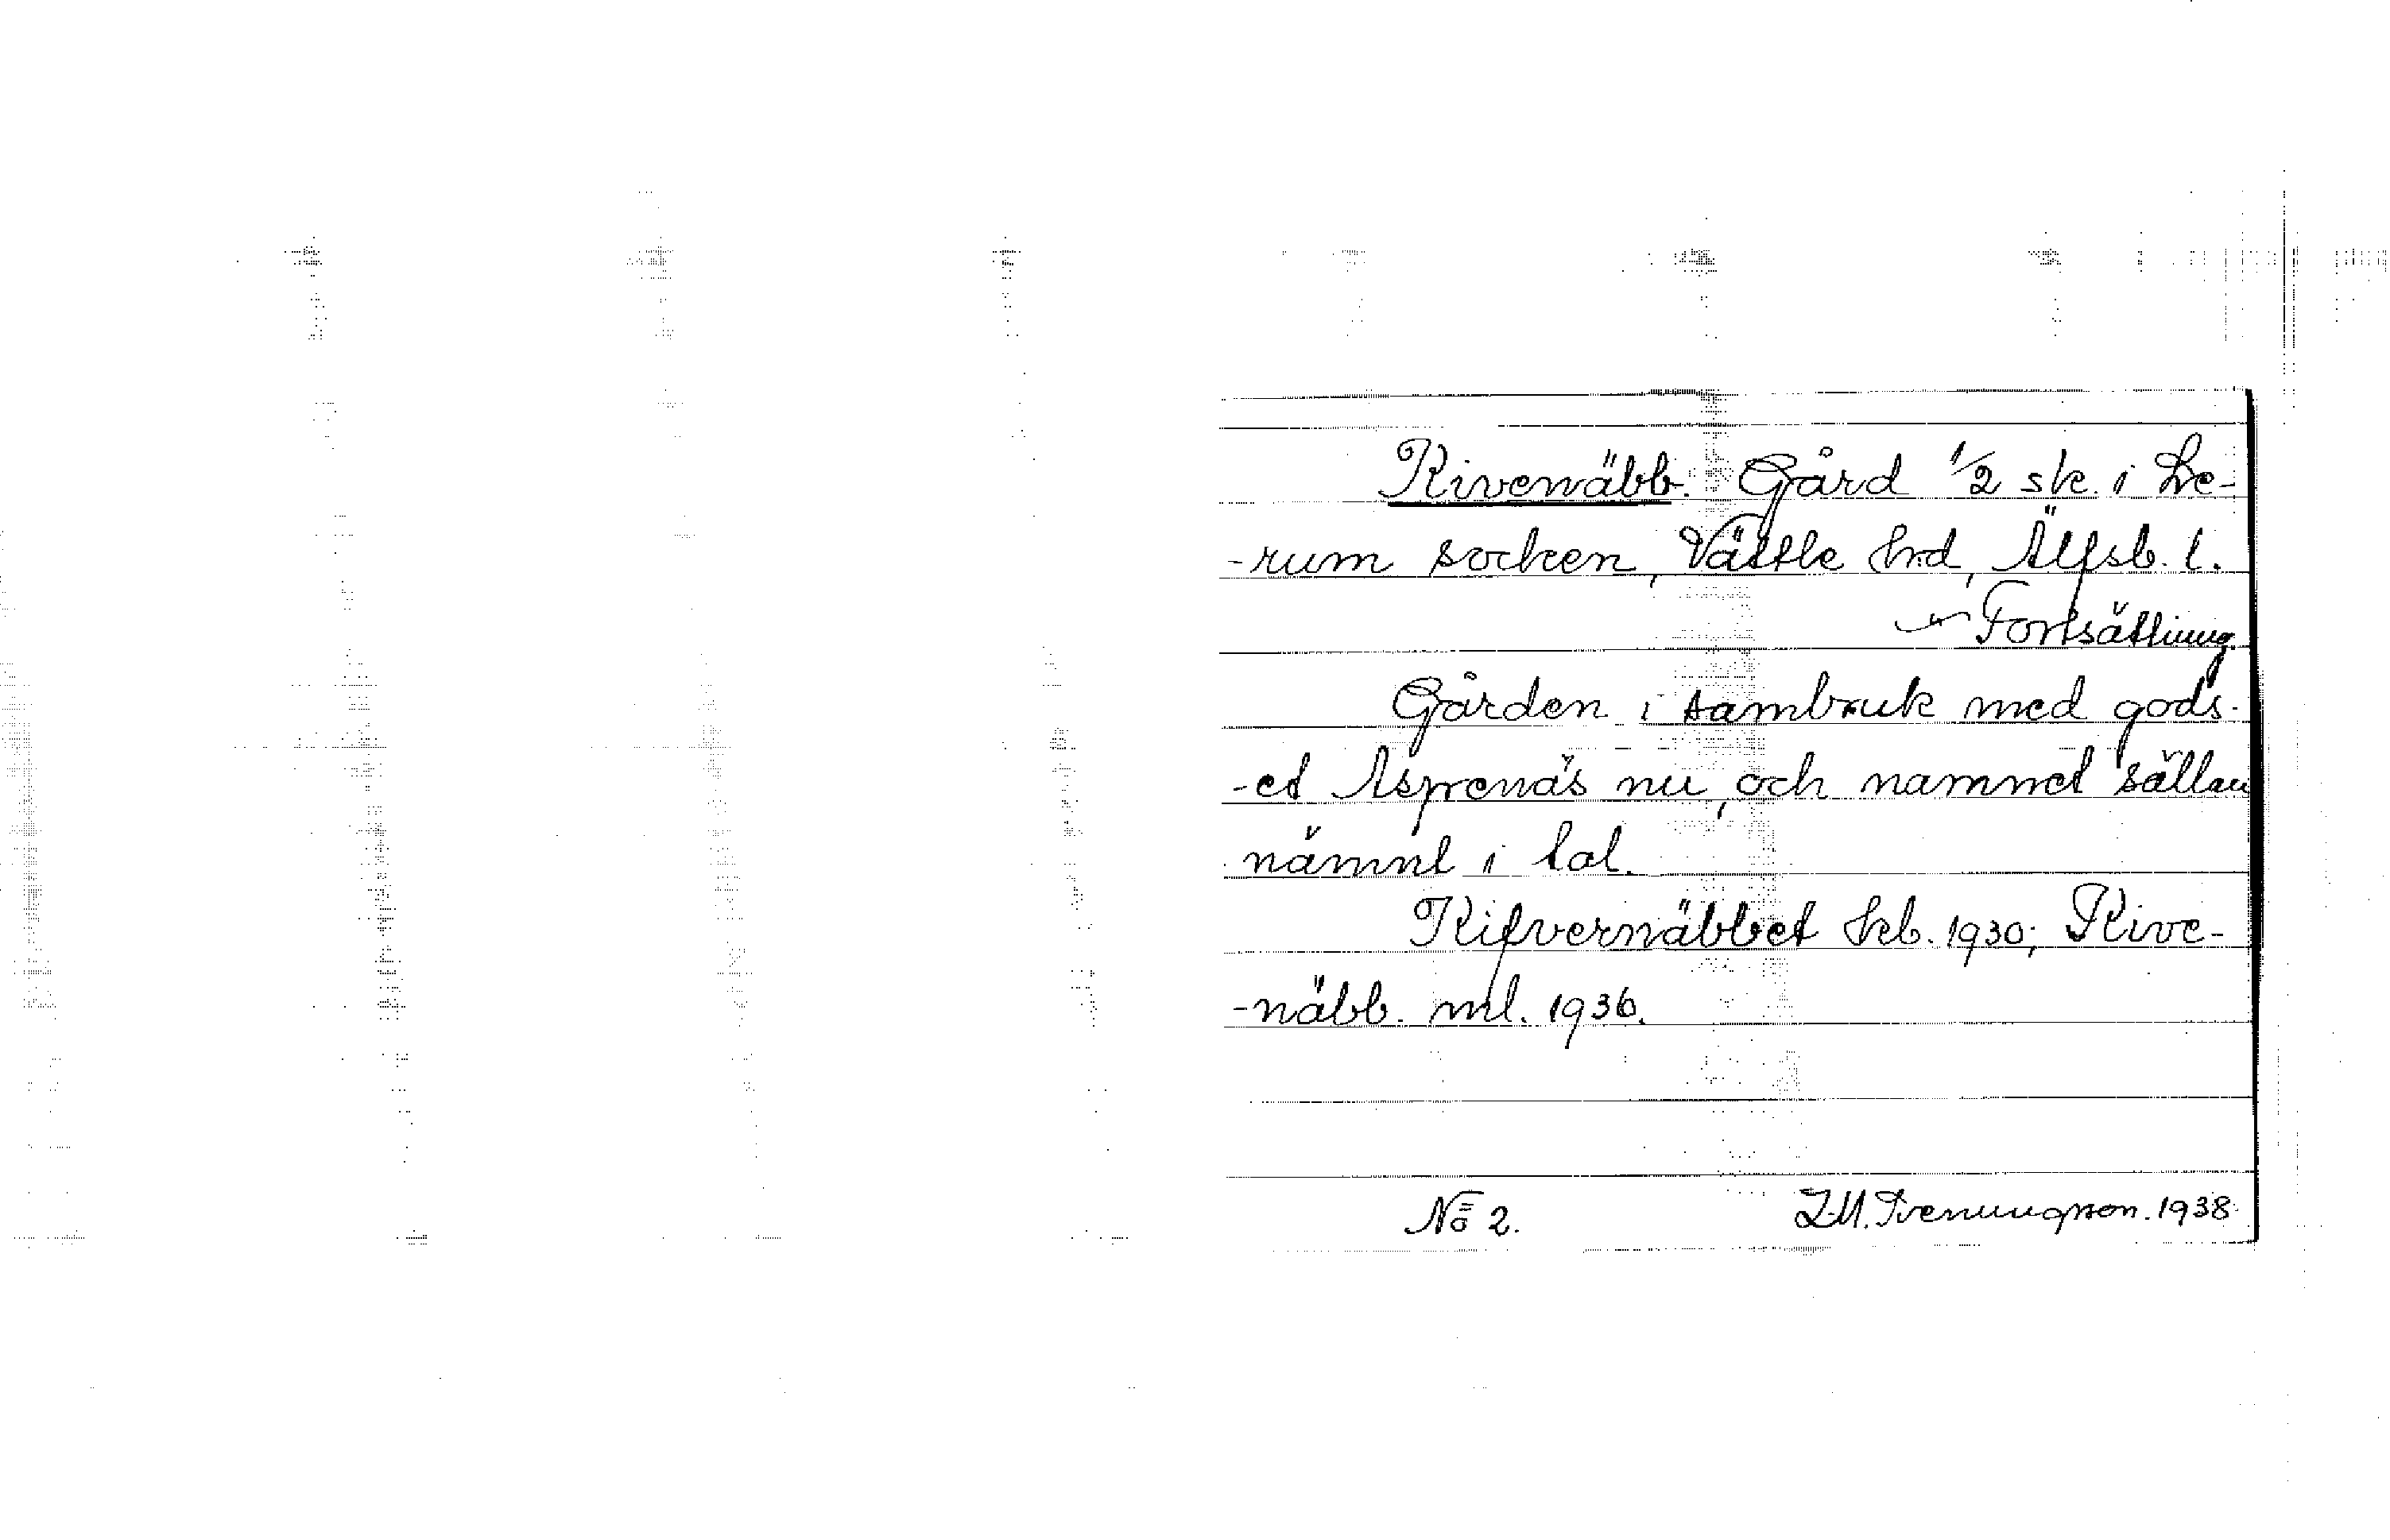 Rivenäbb. Gård 1/2 sk. i Le-
-rum socken, Vättle hrd, Älfsb. l.
Fortsättning.
Gården i sambruk med gods-
-et Aspenäs nu, och namnet sällan
nämnt i tal.
Rifvernäbbet hb. 1930; Rive-
-näbb. ml. 1936.
No 2.
1938